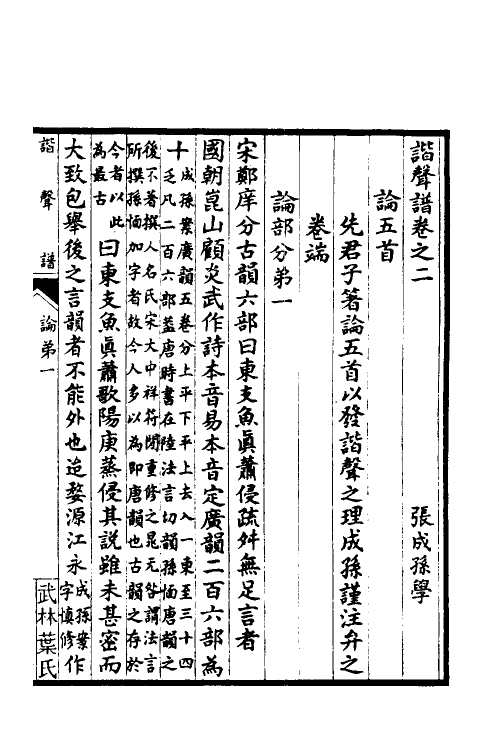 諧聲譜卷之二　張成孫學
論五首
先君子箸論五首以發諧聲之理成孫謹注弁之
卷端
論部分第一
宋鄭庠分古韻六部曰東支魚眞蕭侵疏舛無足言者
國朝崑山顧炎武作詩本音易本音定廣韻二百六部為
十成孫案廣韻五卷分上平下平上去入一東至三十四
乏凡二百六部蓋唐時書在陸法言切韻孫愐唐韻之
後不著撰人名氏宋大中祥符閒重修之晁元咎謂法言
所撰孫愐加字者故今人多以為即唐韻也古韻之存於
今者以此
為最古曰東支魚眞蕭歌陽庚蒸侵其說雖未甚密而
大致包舉後之言韻者不能外也迨婺源江永成孫案
字慎修作
諧聲譜　論第一
武林葉氏